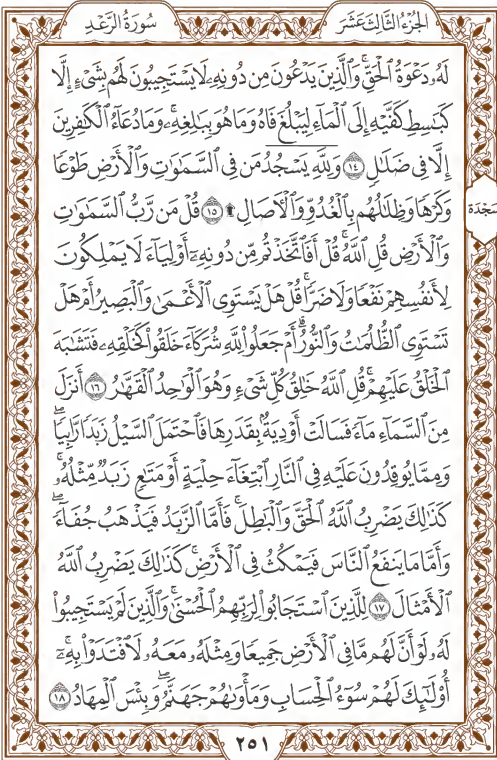 الجُزْءُ الثَّالِثَ عَشَرَ
سُورَةُ الرَّعْدِ
لَهُۥ دَعۡوَةُ ٱلۡحَقِّۚ وَٱلَّذِينَ يَدۡعُونَ مِن دُونِهِۦ لَا يَسۡتَجِيبُونَ لَهُم بِشَيۡءٍ إِلَّا
كَبَٰسِطِ كَفَّيۡهِ إِلَى ٱلۡمَآءِ لِيَبۡلُغَ فَاهُ وَمَا هُوَ بِبَٰلِغِهِۦۚ وَمَا دُعَآءُ ٱلۡكَٰفِرِينَ
إِلَّا فِي ضَلَٰلٖ ١٤ وَلِلَّهِۤ يَسۡجُدُۤ مَن فِي ٱلسَّمَٰوَٰتِ وَٱلۡأَرۡضِ طَوۡعٗا
وَكَرۡهٗا وَظِلَٰلُهُم بِٱلۡغُدُوِّ وَٱلۡأٓصَالِ۩ ١٥ قُلۡ مَن رَّبُّ ٱلسَّمَٰوَٰتِ
سَجْدَة
وَٱلۡأَرۡضِ قُلِ ٱللَّهُۚ قُلۡ أَفَٱتَّخَذۡتُم مِّن دُونِهِۦٓ أَوۡلِيَآءَ لَا يَمۡلِكُونَ
لِأَنفُسِهِمۡ نَفۡعٗا وَلَا ضَرّٗاۚ قُلۡ هَلۡ يَسۡتَوِي ٱلۡأَعۡمَىٰ وَٱلۡبَصِيرُ أَمۡ هَلۡ
تَسۡتَوِي ٱلظُّلُمَٰتُ وَٱلنُّورُۗ أَمۡ جَعَلُواْ لِلَّهِ شُرَكَآءَ خَلَقُواْ كَخَلۡقِهِۦ فَتَشَٰبَهَ
ٱلۡخَلۡقُ عَلَيۡهِمۡۚ قُلِ ٱللَّهُ خَٰلِقُ كُلِّ شَيۡءٖ وَهُوَ ٱلۡوَٰحِدُ ٱلۡقَهَّٰرُ ١٦ أَنزَلَ
مِنَ ٱلسَّمَآءِ مَآءٗ فَسَالَتۡ أَوۡدِيَةُۢ بِقَدَرِهَا فَٱحۡتَمَلَ ٱلسَّيۡلُ زَبَدٗا رَّابِيٗاۖ
وَمِمَّا يُوقِدُونَ عَلَيۡهِ فِي ٱلنَّارِ ٱبۡتِغَآءَ حِلۡيَةٍ أَوۡ مَتَٰعٖ زَبَدٞ مِّثۡلُهُۥۚ
كَذَٰلِكَ يَضۡرِبُ ٱللَّهُ ٱلۡحَقَّ وَٱلۡبَٰطِلَۚ فَأَمَّا ٱلزَّبَدُ فَيَذۡهَبُ جُفَآءٗۖ
وَأَمَّا مَا يَنفَعُ ٱلنَّاسَ فَيَمۡكُثُ فِي ٱلۡأَرۡضِۚ كَذَٰلِكَ يَضۡرِبُ ٱللَّهُ
ٱلۡأَمۡثَالَ ١٧ لِلَّذِينَ ٱسۡتَجَابُواْ لِرَبِّهِمُ ٱلۡحُسۡنَىٰۚ وَٱلَّذِينَ لَمۡ يَسۡتَجِيبُواْ
لَهُۥ لَوۡ أَنَّ لَهُم مَّا فِي ٱلۡأَرۡضِ جَمِيعٗا وَمِثۡلَهُۥ مَعَهُۥ لَٱفۡتَدَوۡاْ بِهِۦٓۚ
أُوْلَٰٓئِكَ لَهُمۡ سُوٓءُ ٱلۡحِسَابِ وَمَأۡوَىٰهُمۡ جَهَنَّمُۖ وَبِئۡسَ ٱلۡمِهَادُ ١٨
٢٥١